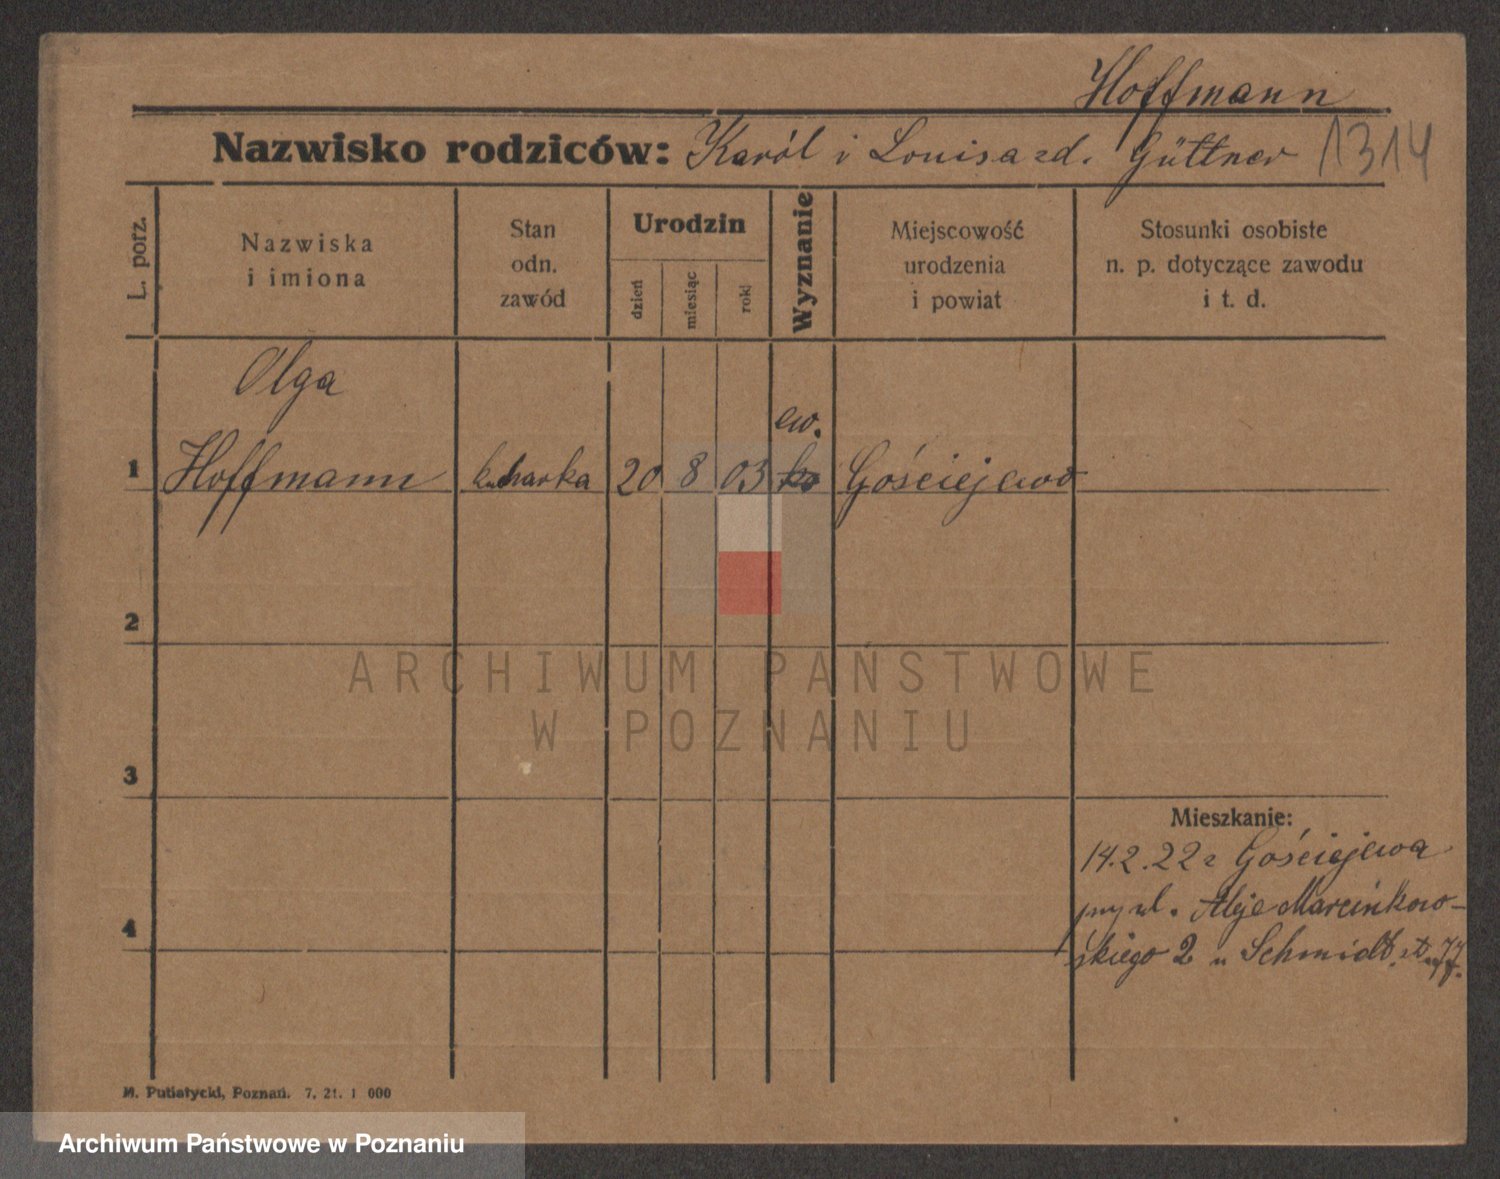 Hoffmann
Nazwisko rodziców: Karól i Louisa zd. Güttner 1314
L. porz.
Nazwiska
i imiona
Stan
odn.
zawód
Urodzin
dzień
miesiąc
rok
Wyznanie
Miejscowość
urodzenia
i powiat
Stosunki osobiste
n. p. dotyczące zawodu
i t. d.
Olga
ew.
1 Hoffmann kucharka 20 8 03 ko Gościejewo
2
ARCHIWUM PAŃSTWOWE
W POZNANIU
3
Mieszkanie:
14.2.22 z Gościejewa
4 przy ul. Aleje Marcinkow-
skiego 2 u Schmidt
M. Putiatycki, Poznań. 7. 21. 1 000
Archiwum Państwowe w Poznaniu